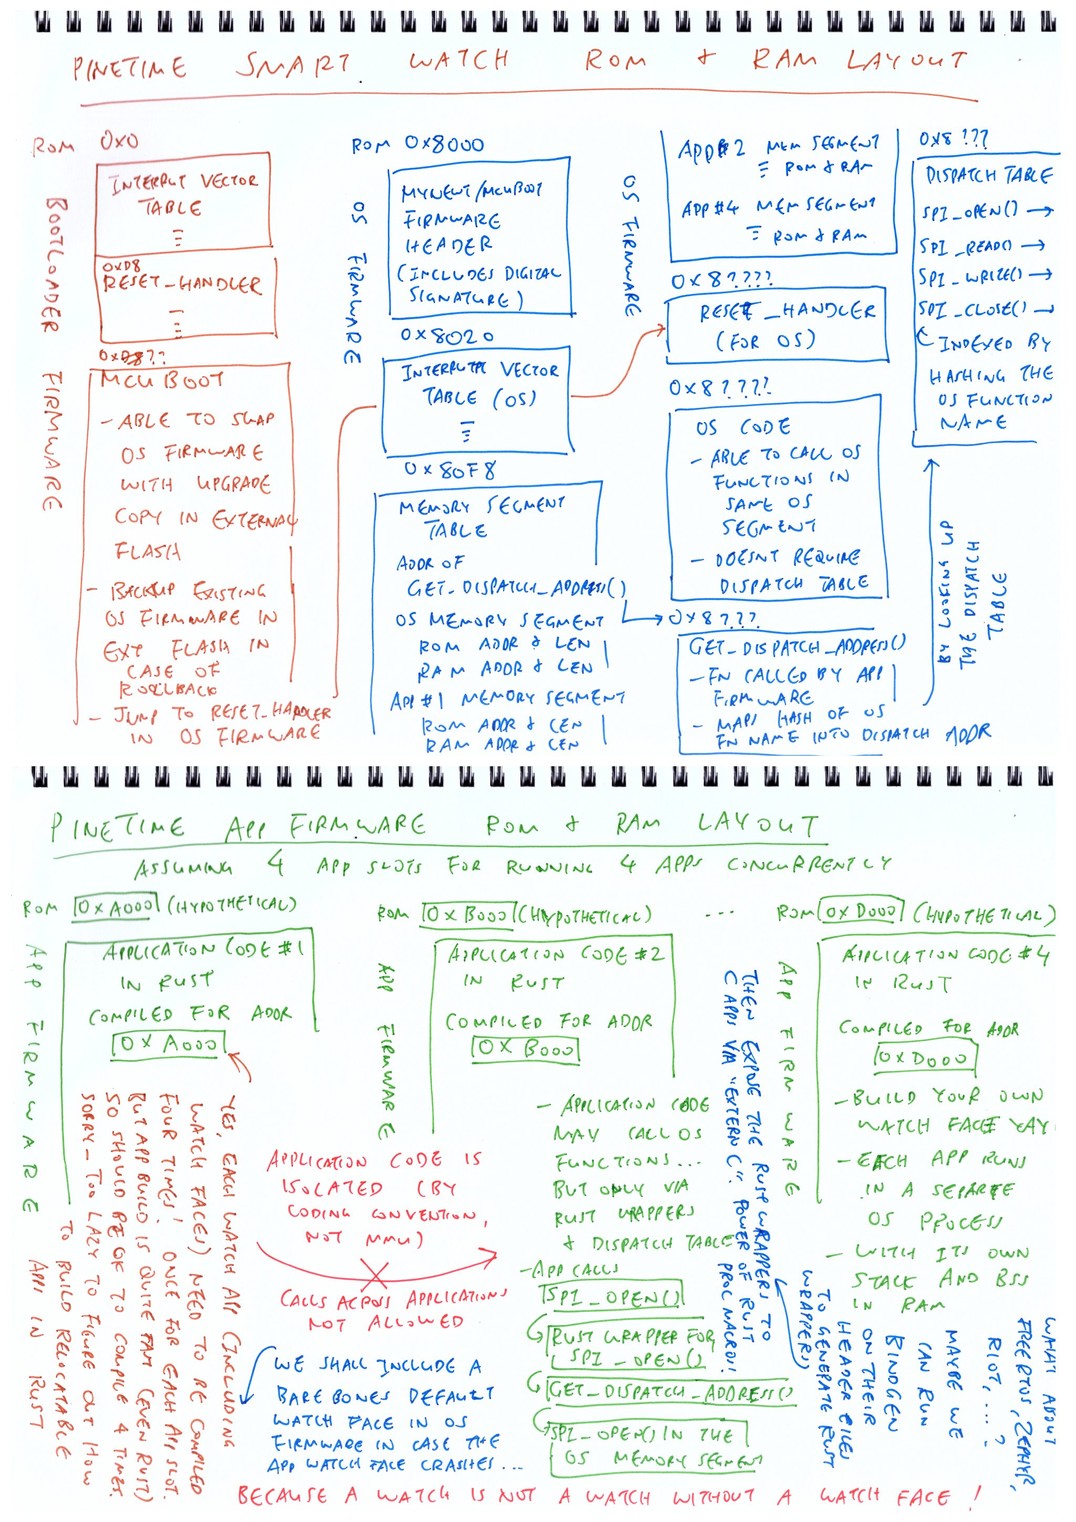 PINETIME SMART WATCH ROM & RAM LAYOUT
ROM 0x0
BOOTLOADER FIRMWARE
INTERRUPT VECTOR
TABLE
0xD8
RESET_HANDLER
0xD8??
MCUBOOT
- ABLE TO SWAP
OS FIRMWARE
WITH UPGRADE
COPY IN EXTERNAL
FLASH
- BACKUP EXISTING
OS FIRMWARE IN
EXT FLASH IN
CASE OF
ROLLBACK
- JUMP TO RESET_HANDLER
IN OS FIRMWARE
ROM 0x8000
OS FIRMWARE
MYNEWT/MCUBOOT
FIRMWARE
HEADER
(INCLUDES DIGITAL
SIGNATURE)
0x8020
INTERRUPT VECTOR
TABLE (OS)
0x80F8
MEMORY SEGMENT
TABLE
ADDR OF
GET_DISPATCH_ADDRESS()
OS MEMORY SEGMENT
ROM ADDR & LEN
RAM ADDR & LEN
APP #1 MEMORY SEGMENT
ROM ADDR & LEN
RAM ADDR & LEN
OS FIRMWARE
APP #2 MEM SEGMENT
ROM & RAM
APP #4 MEM SEGMENT
ROM & RAM
0x8????
RESET_HANDLER
(FOR OS)
0x8????
OS CODE
- ABLE TO CALL OS
FUNCTIONS IN
SAME OS
SEGMENT
- DOESNT REQUIRE
DISPATCH TABLE
0x8???
GET_DISPATCH_ADDRESS()
- FN CALLED BY APP
FIRMWARE
- MAPS HASH OF OS
FN NAME INTO DISPATCH ADDR
0x8???
DISPATCH TABLE
SPI_OPEN() →
SPI_READ() →
SPI_WRITE() →
SPI_CLOSE() →
INDEXED BY
HASHING THE
OS FUNCTION
NAME
BY LOOKING UP
THE DISPATCH
TABLE
PINETIME APP FIRMWARE ROM & RAM LAYOUT
ASSUMING 4 APP SLOTS FOR RUNNING 4 APPS CONCURRENTLY
ROM 0xA000 (HYPOTHETICAL)
APP FIRMWARE
APPLICATION CODE #1
IN RUST
COMPILED FOR ADDR
0xA000
YES, EACH WATCH APP (INCLUDING
WATCH FACES) NEED TO BE COMPILED
FOUR TIMES! ONCE FOR EACH APP SLOT.
BUT APP BUILD IS QUITE FAST (EVEN RUST)
SO SHOULD BE OK TO COMPILE 4 TIMES.
SORRY - TOO LAZY TO FIGURE OUT HOW
TO BUILD RELOCATABLE
APPS IN RUST
ROM 0xB000 (HYPOTHETICAL)
APP FIRMWARE
APPLICATION CODE #2
IN RUST
COMPILED FOR ADDR
0xB000
- APPLICATION CODE
MAY CALL OS
FUNCTIONS...
BUT ONLY VIA
RUST WRAPPERS
& DISPATCH TABLE
- APP CALLS
SPI_OPEN()
RUST WRAPPER FOR
SPI_OPEN()
GET_DISPATCH_ADDRESS()
SPI_OPEN() IN THE
OS MEMORY SEGMENT
APPLICATION CODE IS
ISOLATED (BY
CODING CONVENTION,
NOT MMU)
CALLS ACROSS APPLICATIONS
NOT ALLOWED
WE SHALL INCLUDE A
BARE BONES DEFAULT
WATCH FACE IN OS
FIRMWARE IN CASE THE
APP WATCH FACE CRASHES...
BECAUSE A WATCH IS NOT A WATCH WITHOUT A WATCH FACE!
...
ROM 0xD000 (HYPOTHETICAL)
APP FIRMWARE
APPLICATION CODE #4
IN RUST
COMPILED FOR ADDR
0xD000
- BUILD YOUR OWN
WATCH FACE YAY
- EACH APP RUNS
IN A SEPARATE
OS PROCESS
- WITH ITS OWN
STACK AND BSS
IN RAM
WHAT ABOUT
FREERTOS, ZEPHYR,
RIOT, ...?
MAYBE WE
CAN RUN
BINDGEN
ON THEIR
HEADER FILES
TO GENERATE RUST
WRAPPERS
THEN EXPOSE THE RUST WRAPPERS TO
C APPS VIA "EXTERN C". POWER OF RUST
PROC MACROS!